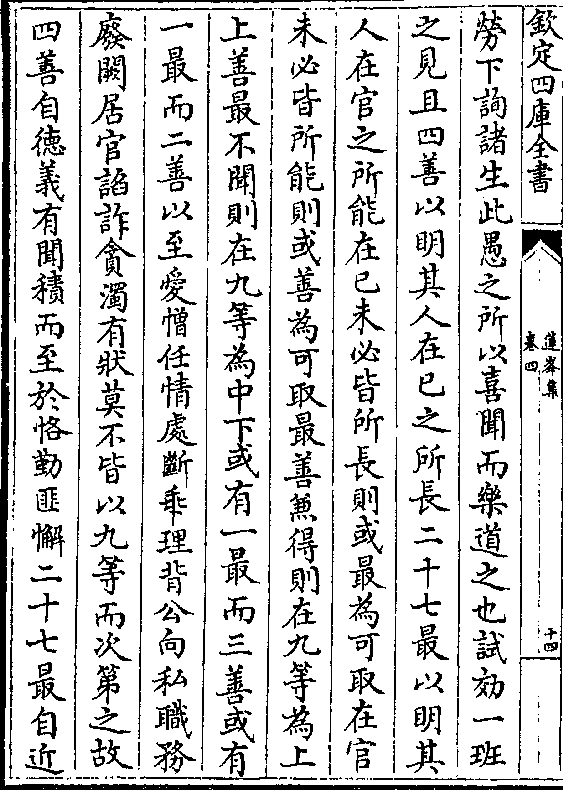 欽定四庫全書
蓮峯集
卷四
十四
勞下詢諸生此愚之所以喜聞而樂道之也試効一班
之見且四善以明其人在已之所長二十七最以明其
人在官之所能在已未必皆所長則或最為可取在官
未必皆所能則或善為可取最善兼得則在九等為上
上善最不聞則在九等為中下或有一最而三善或有
一最而二善以至愛憎任情處斷乖理背公向私職務
廢闕居官諂詐貪濁有狀莫不皆以九等而次第之故
四善自徳義有聞積而至於恪勤匪懈二十七最自近